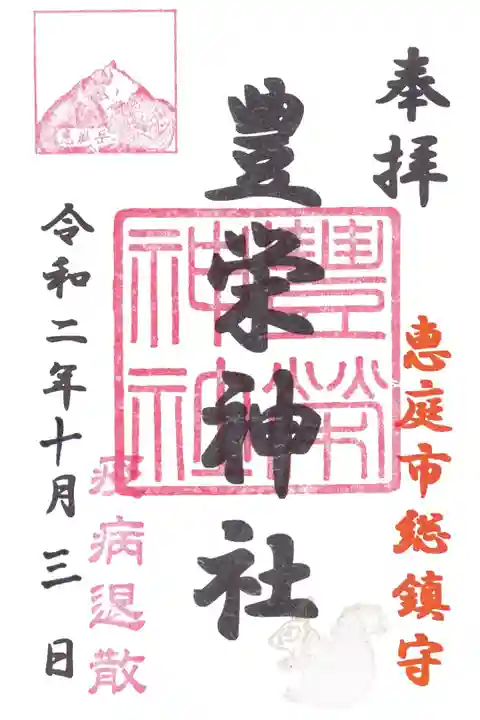 奉拝
恵庭市総鎮守
豊栄神社
豊栄神社
疫病退散
令和二年十月三日
恵庭岳